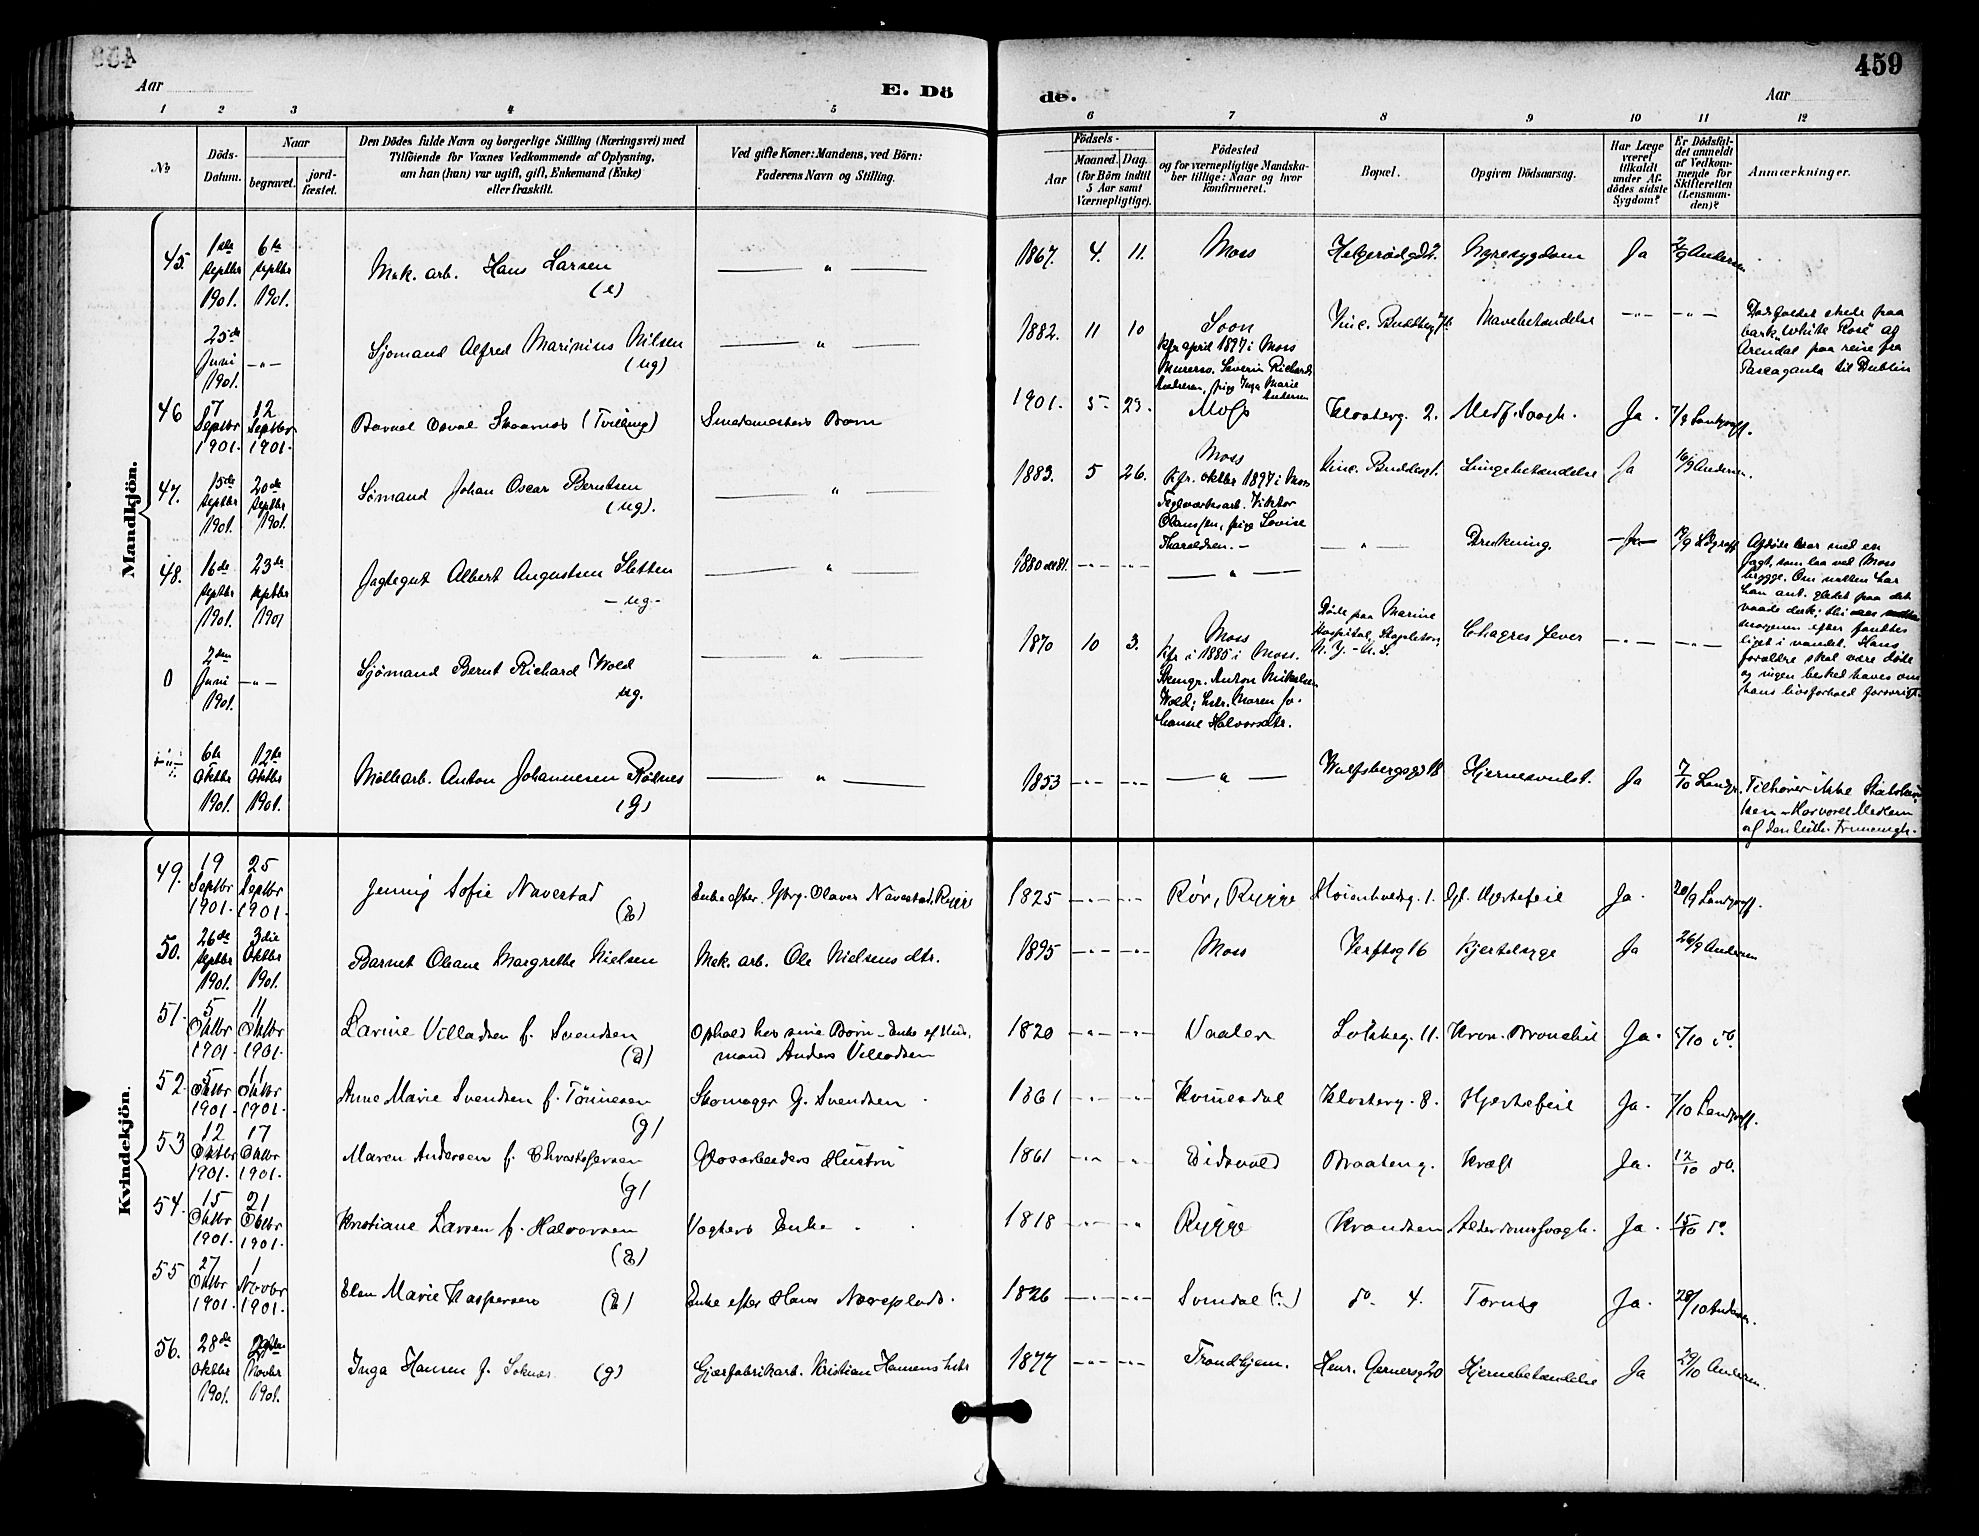 459
Aar
E. Dö
de.
Aar
1 2 3 4 5 6 7 8 9 10 11 12
No
Döds-
Datum.
Naar
begravet.
jord-
fæstet.
Den Dödes fulde Navn og borgerlige Stilling (Næringsvei) med
Tilföiende for Voxnes Vedkommende af Oplysning,
om han (hun) var ugift, gift, Enkemand (Enke)
eller fraskilt.
Ved gifte Koner: Mandens, ved Börn:
Faderens Navn og Stilling.
Födsels-
Aar
Maaned. Dag.
(for Börn indtil
5 Aar samt
Værnepligtige).
Födested
og for værnepligtige Mandska-
ber tillige: Naar og hvor
konfirmeret.
Bopæl.
Opgiven Dödsaarsag.
Har Læge
været
tilkaldt
under Af-
dödes sidste
Sygdom?
Er Dödsfal-
det anmeldt
af Vedkom-
mende for
Skifteretten
(Lensman-
den)?
Anmærkninger.
Mandkjön.
45.
1ste
Septbr
1901.
6te
Septbr
1901.
Mek. arb. Hans Larsen
(e)
— " —
1867. 4. 11.
Moss
Helgerødgd 2.
Nyresygdom
Ja
2/9 Andersen
25de
Juni
1901.
— " —
Sjömand Alfred Marinius Nilsen
(ug)
— " —
1882. 11 10
Soon
Kfr april 1897 i Moss
Murersv. Severin Richard
Andersen, pige Inga Marie
Andersen
Vinc. Buddesg
Mavebetændelse
— " —
— " —
Dødsfaldet skede paa
bark "White Rose" af
Arendal paa reise fra
Pascagaula til Dublin
46
7
Septbr
1901.
12
Septbr
1901.
Barnet Osval Skaarnes (Tvilling)
Smedmesters Barn
1901. 5 23.
Moss
Klosterg. 2.
Medf. Svagh.
Ja.
7/9 Landgraff.
47.
15de
Septbr
1901.
20de
Septbr
1901.
Sømand Johan Oscar Berntsen
(ug).
— " —
1883. 5 26.
Moss
Kfr. oktbr 1897 i Moss
Teglværksarb. Viktor
Olaussen, pige Lovise
Tharaldsen. —
Vinc. Buddesgt.
Lungebetændelse
Ja
16/9 Andersen.
48.
16de
Septbr
1901.
23de
Septbr
1901
Jagtegut Albert Augustsen Sletten
— ug.-
— " —
1880 — " — — " —
— " —
— " —
Drukning.
17/9 Ldgraff
Afdøde var med en
Jagt, som laa ved Moss
brygge. Om natten har
han ant. glidet paa det
vaade dæk; thi
morgenen efter fandtes
liget i vandet. Hans
forældre skal være døde
og ingen besked haves om
hans livsforhold forøvrigt.
0
2den
Juni
1901.
— " —
Sjömand Bernt Richard Wold
ug.
— " —
1870 10 3.
Moss
Kfr i 1885 i Moss.
Stengr. Anton Mikelsen
Wold; hstr. Maren Jo-
hanne Halvorsdtr.
Døde paa Marine
Hospital, Stapleton,
N. Y. - U. S.
Chagres Fever
— " —
— " —
6te
Oktbr
1901.
12te
Oktbr
1901.
Møllearb. Anton Johannesen Røknes
(g)
— " —
1853 — " — — " —
— " —
Wulfsbergsgd 18
Hjernesvulst.
Ja
7/10 Landgr.
Tilhører ikke Statskir-
ken - Har været Medlem
af den luth. Frimenigh.
Kvindekjön.
49.
19
Septbr
1901.
25
Septbr
1901.
Jenny Sofie Navestad
(E)
Enke efter Gbrg. Olaves Navestad, Rygge
1825 — " — — " —
Rör, Rygge
Høienholdsg. 1.
Hjertefeil
Ja.
20/9 Landgraff.
50.
26de
Septbr
1901.
3die
Oktbr
1901.
Barnet Oleane Margrethe Nielsen
Mek. arb. Ole Nielsens dtr.
1895 — " — — " —
Moss
Verftsg 16
Kjertelsyge
Ja
26/9 Andersen
51.
5
Oktbr
1901.
11
Oktbr
1901.
Larine Villadsen f. Svendsen
(E)
Ophold hos sine Börn - Enke ef Hus-
mand Anders Villadsen
1820 — " — — " —
Vaaler
11.
Kron. Bronchit
Ja.
5/10 do.
52.
5
Oktbr
1901.
11
Oktbr
1901.
Anne Marie Svendsen f. Tönnesen
(g)
Skomager G. Svendsen
1861 — " — — " —
Kvinesdal
Klosterg. 8.
Hjertefeil
Ja.
7/10 Landgraff.
53
12
Oktbr
1901.
17
Oktbr
1901.
Maren Andersen f. Christofersen
(g)
Glasarbeiders Hustru
1861 — " — "
Eidsvold
Braateng.
Kræft
Ja.
12/10 do.
54.
15
Oktbr
1901.
21
Oktbr
1901.
Kristiane Larsen f. Halvorsen
(E)
Vægters Enke
1818 — " — "
Rygge
Kransen
Alderdomssvagh.
Ja.
15/10 do
55
27
Oktbr
1901.
1
Novbr
1901.
Elen Marie Kaspersen (E)
Enke efter Hans Noreplads.
1826 — " — — " —
Svindal (?)
do 4.
Tæring
Ja.
28/10 Andersen.
56.
28de
Oktbr
1901.
Novbr
1901.
Inga Hansen f. Soknes (g)
Gjærfabrikarb. Kristian Hansens hstr
1877 — " — — " —
Trondhjem.
Henr. Gernersg 20
Hjernebetændelse
Ja
29/10 Andersen.